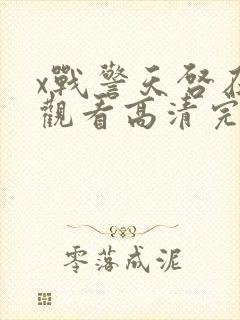 x戰警天啓在
觀看高清完
零落成泥